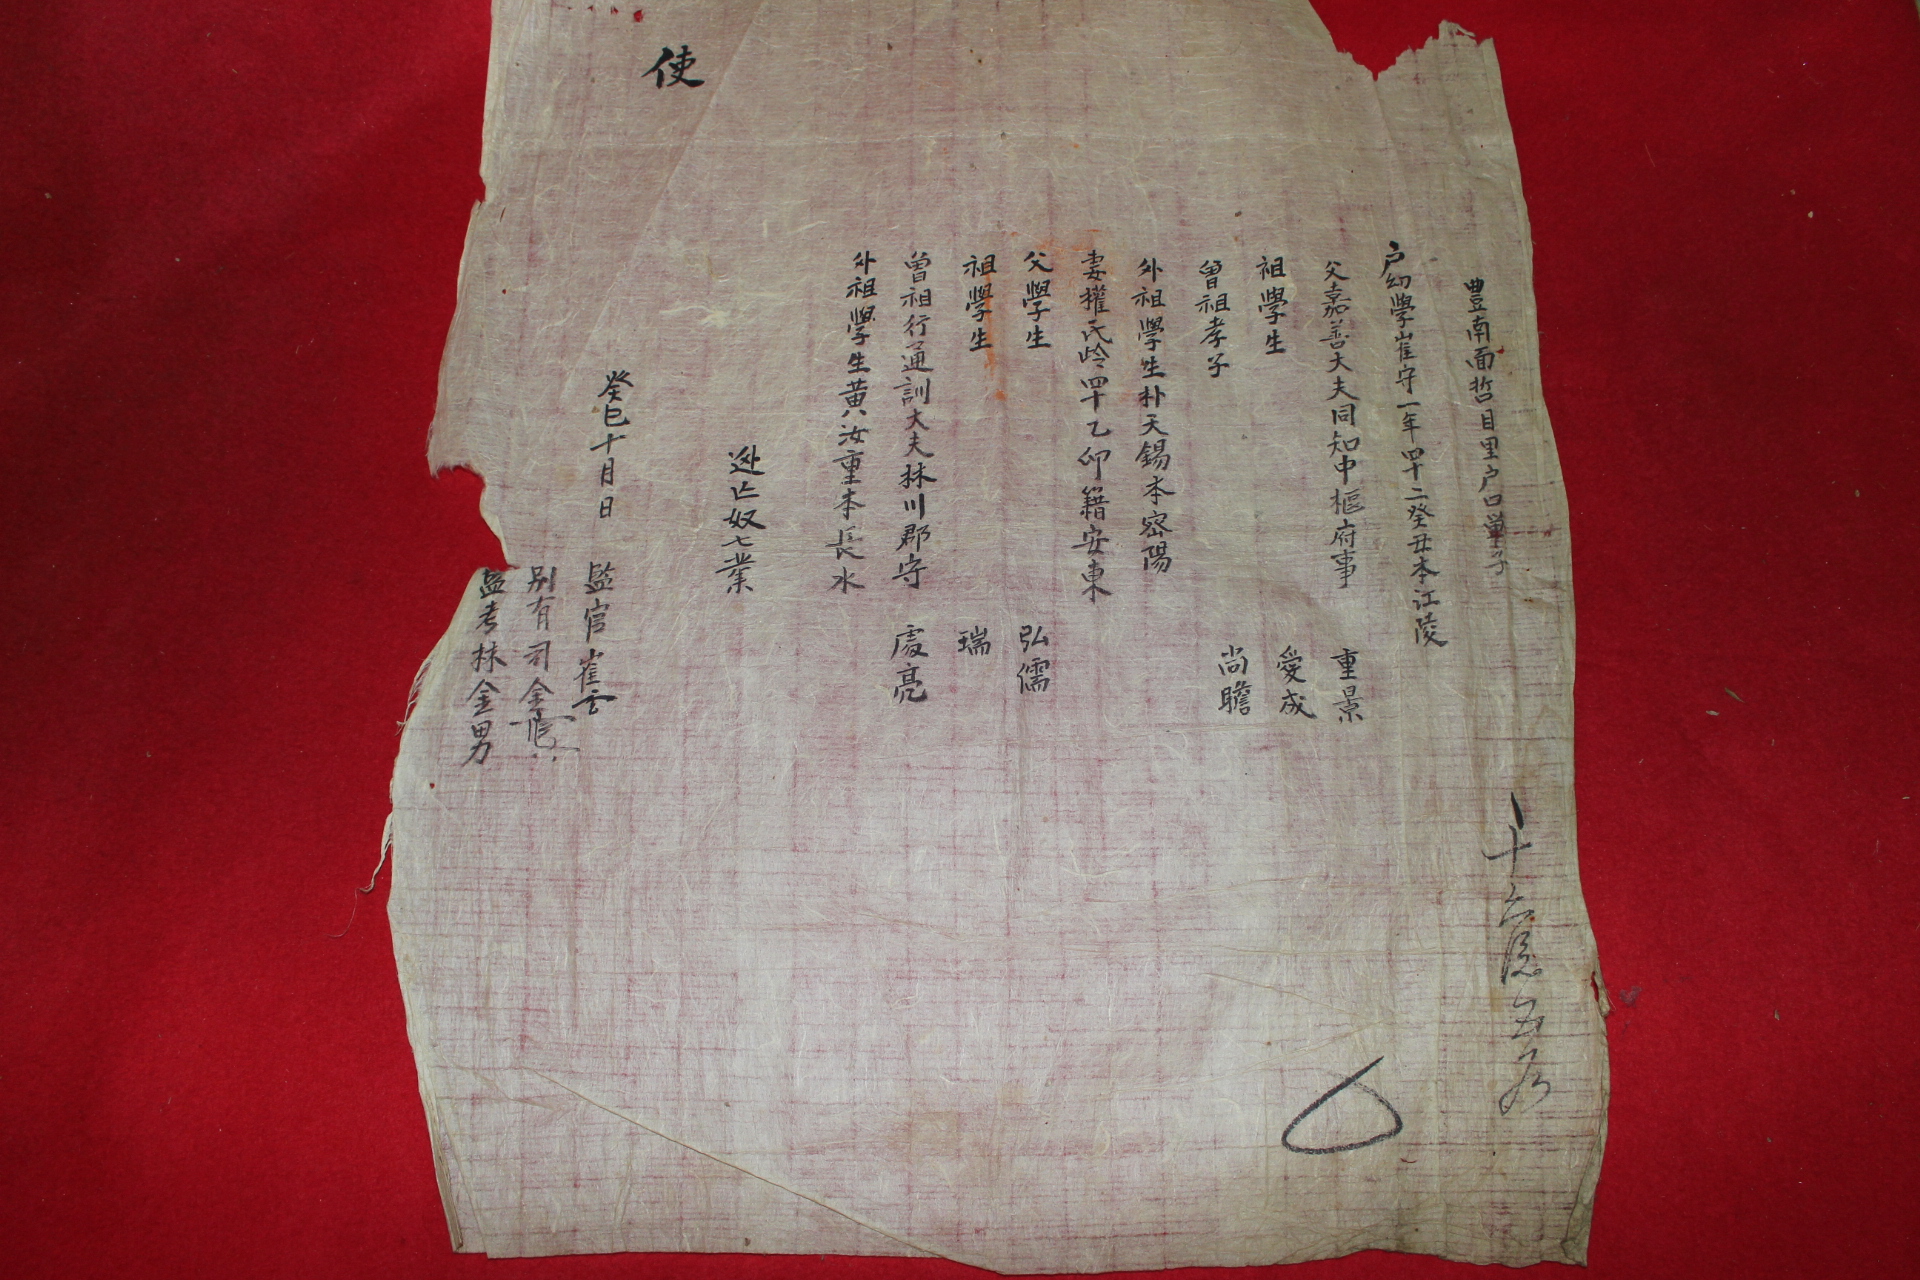 豊南面哲目里户口單子
户幼學崔守一年四十二癸丑本江陵
父嘉善大夫同知中樞府事 重景
祖學生 愛成
曾祖孝子 尚瞻
外祖學生朴天錫本密陽
妻權氏齡四十乙卯籍安東
父學生 弘儒
祖學生 瑞
曾祖行通訓大夫林川郡守 處亮
外祖學生黃汝重本長水
逃亡奴七業
使
癸巳十月日 監官崔
別有司金
監考林金男
十六